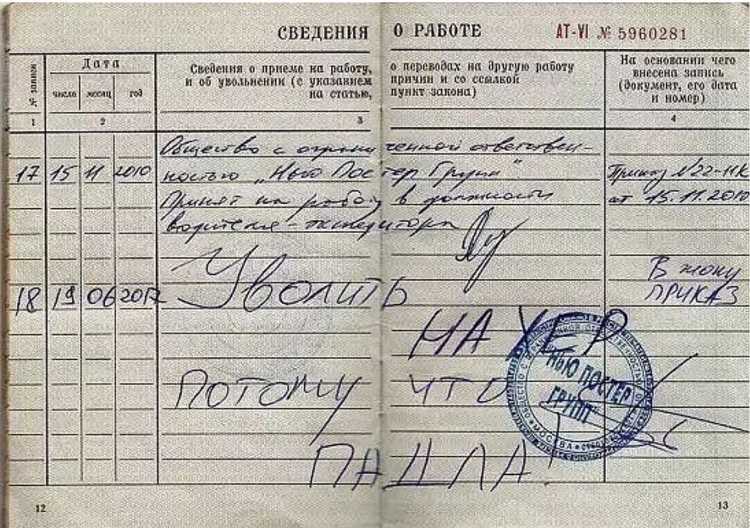 СВЕДЕНИЯ О РАБОТЕ АТ-VI № 5960281
№ записи
Дата
число месяц год
Сведения о приеме на работу, о переводах на другую работу
и об увольнении (с указанием причин и со ссылкой
на статью, пункт закона)
На основании чего
внесена запись
(документ, его дата
и номер)
1 2 3 4
Общество с ограниченной ответствен-
17 15 11 2010 ностью „Нью Постер Групп" Приказ №22-НК
Принят на работу в должности от 15.11.2010
водителя-экспедитора
18 19 06 2017 Уволить В жопу
ПРИКАЗ
НАХЕР
ПОТОМУ ЧТО
ПАДЛА!
ОБЩЕСТВО С ОГРАНИЧЕННОЙ ОТВЕТСТВЕННОСТЬЮ
"НЬЮ ПОСТЕР
ГРУПП"
МОСКВА
12 13